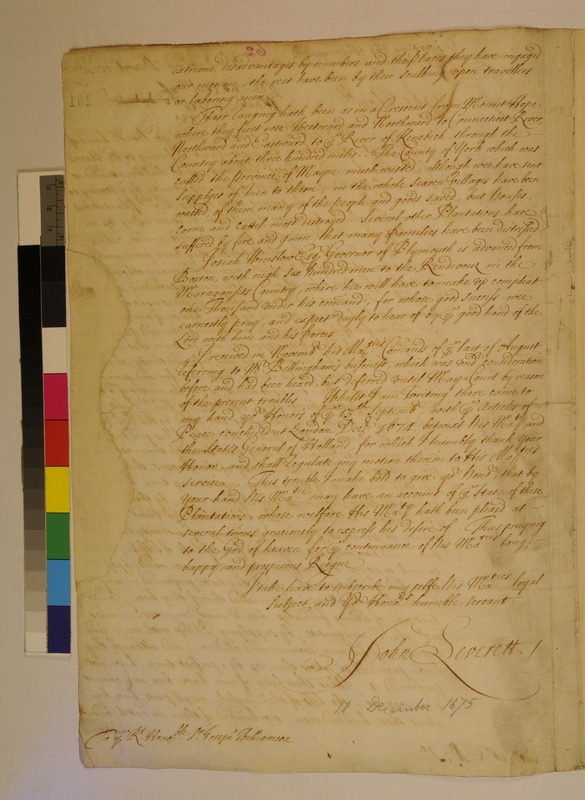 62
extreame disadvantages by numbers and the places they have engaged
our men in, the rest have been by their sculking upon travellers
or labouring men.
Their ranging hath been as in a Crescent from Mount Hope
where they first rose Westward and Northward to Connecticott River
Northward and Eastward to ye River of Kenebeck through the
Country about three hundred miles. The County of York which was
called the Province of Mayne, much wasted, although wee have sent
supplyes of men to them, in the whole seaven Villages have been
wasted of them, many of the people and goods saved, but houses
corne and cattel most destroyed. Several other Plantations have
suffered by fire and gunn that many Families have been distressed
Josiah Winslow Esqr Governor of Plymouth is advanced from
Boston, with nigh six hundred men to the Rendevous in the
Naragansets Country, where hee will have to make up compleat
one Thousand under his comand, for whose good success wee
earnestly pray, and expect dayly to hear of by ye good hand of the
Lord with him and his forces
I received in Novemb his Matys Comands of ye last of August
referring to Mr Bellinghams business which was undr consideration
before and had been heard, but deferred until May Court by reason
of the present troubles. Whilst I am writing there came to
my hand yor Honors of ye 13th Septemb with ye Articles of
Peace concluded at London Decr 1674. between his Maty and
the States General of Holland, for which I humbly thank your
Honor, and shall regulate my motion therein to His Matys
service. This trouble I make bold to give yor Honor, that by
your hand his Matie may have an account of ye State of these
Plantations, whose wellfare His Maty hath been pleased at
several times graciously to express his desire of. Thus praying
to the God of heaven for ye continuance of his Maties long
happy, and prosperous Reigne
I take leave to subscribe my selfe his Maties loyal
subject, and Yor Honors humble servant.
John Leverett.
18 December 1675
To ye Rt Honoble Sr Joseph Williamson